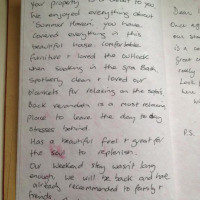 your property is a credit to you
We enjoyed everything about
'Summer Haven', you have
covered everything in this
beautiful house. Comfortable
furniture & loved the outlook
when soaking in the spa bath.
Spotlessly clean & loved our
blankets for relaxing on the sofa's
Back verandah is a most relaxing
place to leave the day to day
stresses behind.
Has a beautiful feel & great for
the soul to replenish.
Our weekend stay wasn't long
enough, we will be back and have
already recommended to family &
friends.
Dear
Once
our
is a
great
really
Look
here
P.S.